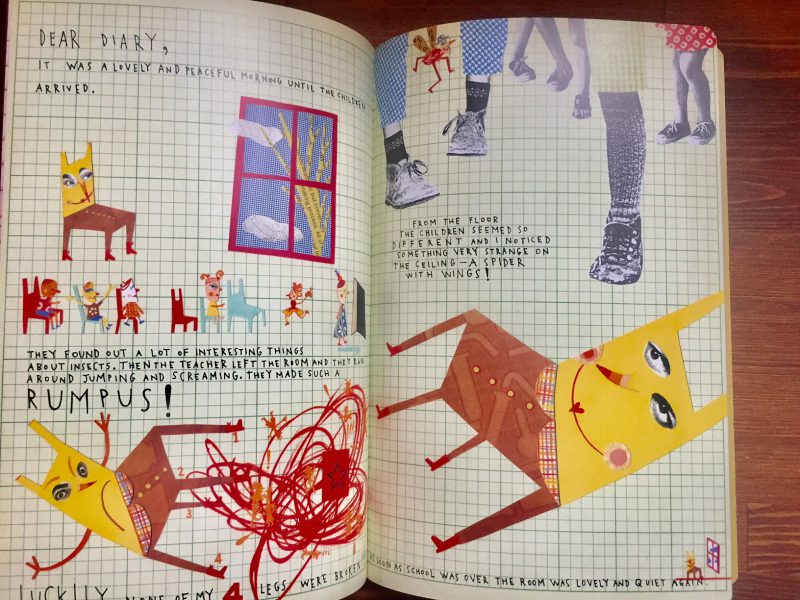 DEAR DIARY,
IT WAS A LOVELY AND PEACEFUL MORNING UNTIL THE CHILDREN
ARRIVED.
THEY FOUND OUT A LOT OF INTERESTING THINGS
ABOUT INSECTS. THEN THE TEACHER LEFT THE ROOM AND THEY RAN
AROUND JUMPING AND SCREAMING. THEY MADE SUCH A
RUMPUS!
1
2
3
4
LUCKILY NONE OF MY 4 LEGS WERE BROKEN
FROM THE FLOOR
THE CHILDREN SEEMED SO
DIFFERENT AND I NOTICED
SOMETHING VERY STRANGE ON
THE CEILING — A SPIDER
WITH WINGS!
AS SOON AS SCHOOL WAS OVER THE ROOM WAS LOVELY AND QUIET AGAIN.